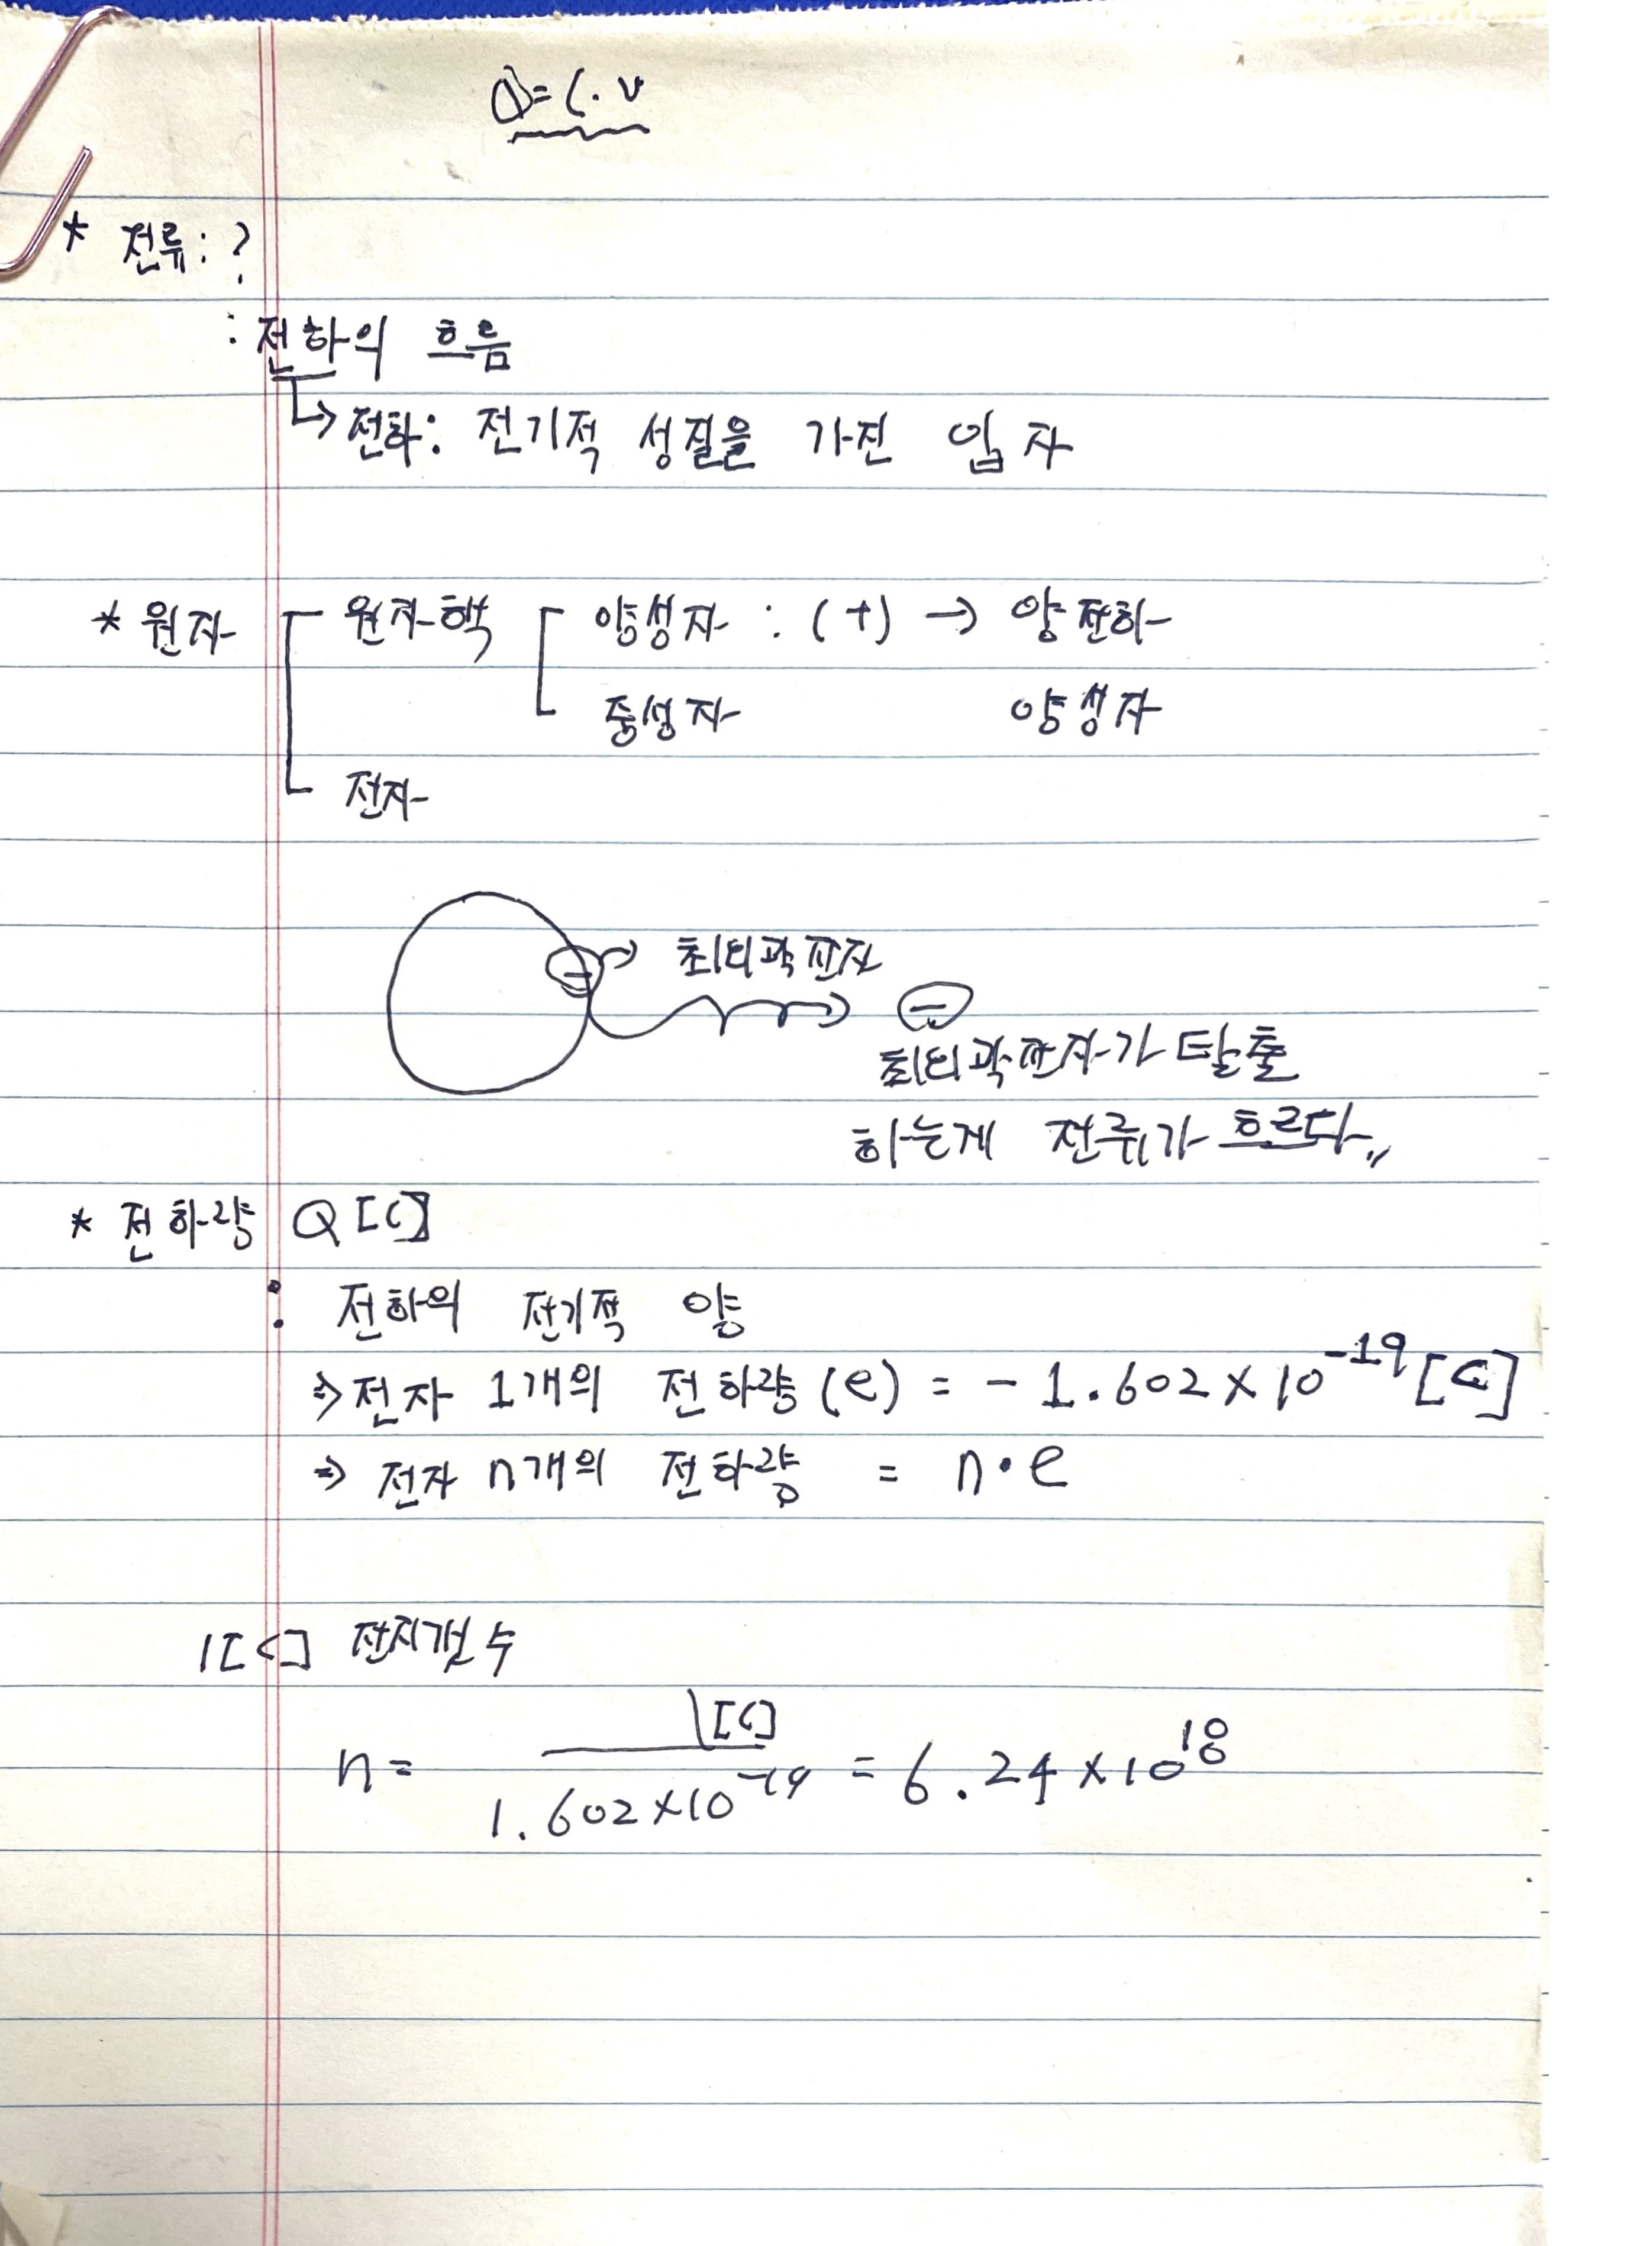 Q = C · V
* 전류 : ?
: 전하의 흐름
↳ 전하 : 전기적 성질을 가진 입자
* 원자 원자핵 양성자 : (+) → 양전하
중성자 양성자
전자
최외곽전자
최외곽전자가 탈출
하는게 전류가 흐른다〃
* 전하량 Q [C]
: 전하의 전기적 양
⇒ 전자 1개의 전하량 (e) = - 1.602 × 10⁻¹⁹ [C]
⇒ 전자 n개의 전하량 = n · e
1[C] 전자갯수
n = 1[C] / 1.602×10⁻¹⁹ = 6.24 × 10¹⁸